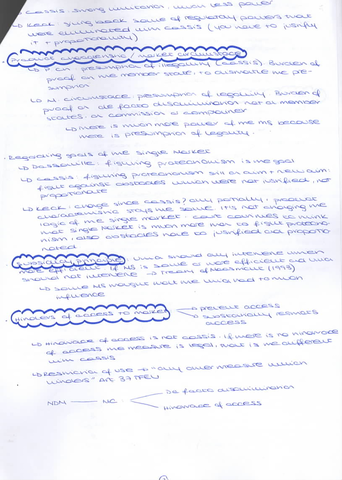 ↳ Cassis: strong limitation: much less power
↳ Keck: giving back some of regulatory powers that
were eliminated with Cassis (you have to justify
it + proportionality)
Product characteristics / market circumstances
presumption of illegality (Cassis). Burden of
proof on the member state: to dismantle the pre-
sumption
↳ M. circumstances: presumption of legality. Burden of
proof of de facto discrimination not on member
states, on commission or complainer
↳ there is much more power of the MS because
there is presumption of legality.
Regarding goals of the single market
↳ Dassonville: fighting protectionism is the goal
↳ Cassis: fighting protectionism still an aim + new aim:
fight against obstacles which were not justified, not
proportionate
↳ Keck: change since Cassis? only partially, product
characteristics stays the same. It's not changing the
logic of the single market. Court continues to think
that single market is much more than to fight protectio-
nism, also obstacles have to be justified and proportio-
nated
Subsidiarity principle: Union should only intervene when
more efficient. If MS is more efficient the Union
should not intervene → Treaty of Maastricht (1993)
↳ some MS thought that the Union had to much
influence
Hinders of access to market → prevent access
→ substantially restricts
access
↳ Hindrance of access is not Cassis. If there is no hindrance
of access the measure is legal, that is the different
with Cassis
↳ Restriction of use → "any other measure which
hinders"
NDM — MC — De facto discrimination
Hindrance of access